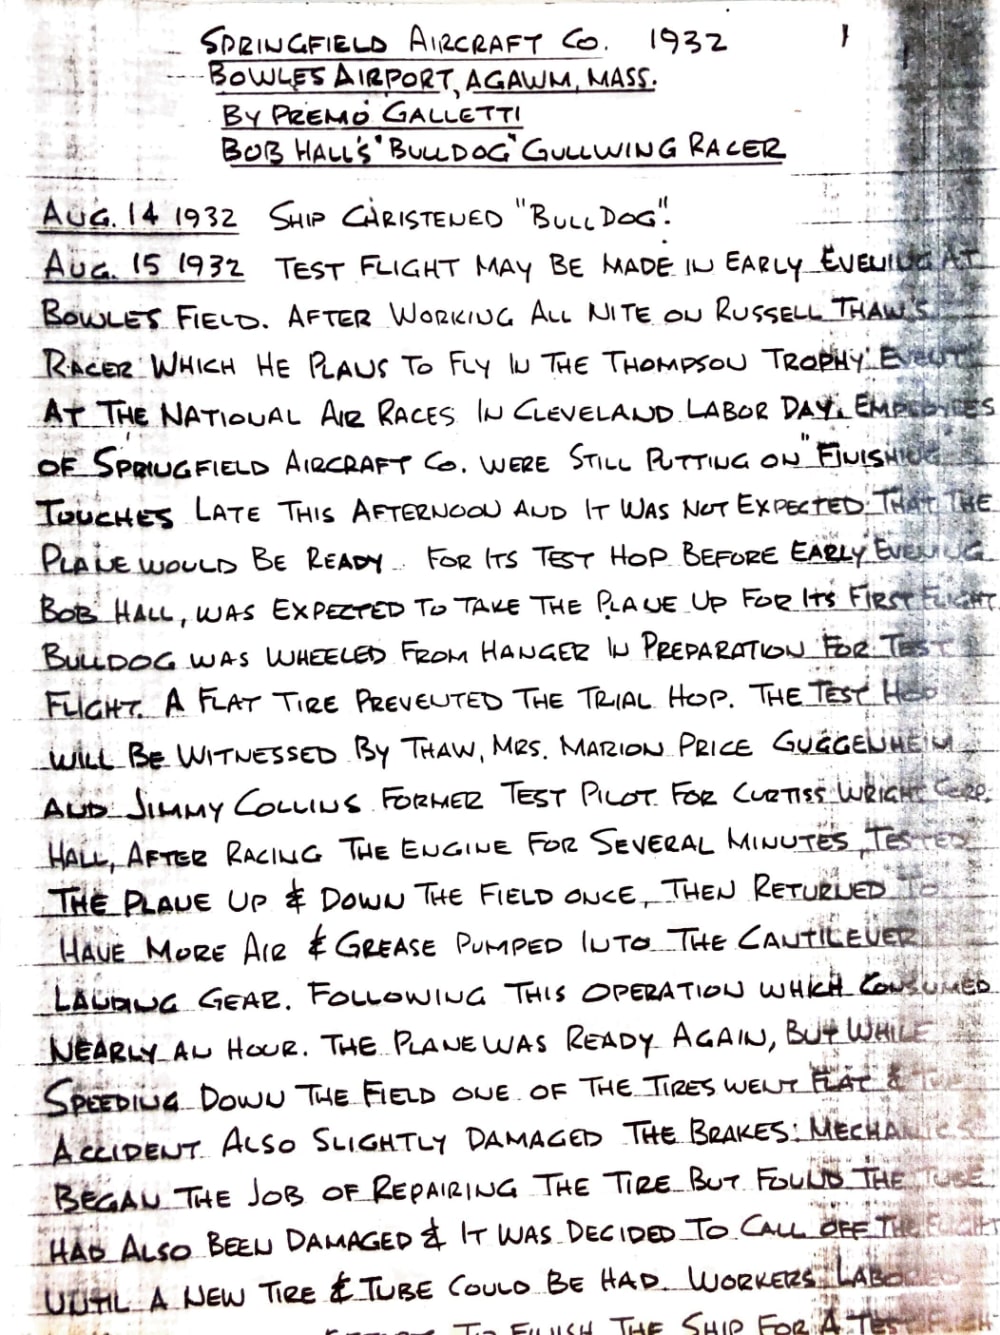 SPRINGFIELD AIRCRAFT CO. 1932 1
BOWLES AIRPORT, AGAWM, MASS.
BY PREMO GALLETTI
BOB HALL'S "BULLDOG" GULLWING RACER
AUG. 14 1932 SHIP CHRISTENED "BULLDOG".
AUG. 15 1932 TEST FLIGHT MAY BE MADE IN EARLY EVENING AT
BOWLES FIELD. AFTER WORKING ALL NITE ON RUSSELL THAW'S
RACER WHICH HE PLANS TO FLY IN THE THOMPSON TROPHY EVENT
AT THE NATIONAL AIR RACES IN CLEVELAND LABOR DAY. EMPLOYEES
OF SPRINGFIELD AIRCRAFT CO. WERE STILL PUTTING ON "FINISHING
TOUCHES LATE THIS AFTERNOON AND IT WAS NOT EXPECTED THAT THE
PLANE WOULD BE READY FOR ITS TEST HOP BEFORE EARLY EVENING
BOB HALL, WAS EXPECTED TO TAKE THE PLANE UP FOR ITS FIRST FLIGHT.
BULLDOG WAS WHEELED FROM HANGER IN PREPARATION FOR TEST
FLIGHT. A FLAT TIRE PREVENTED THE TRIAL HOP. THE TEST HOP
WILL BE WITNESSED BY THAW, MRS. MARION PRICE GUGGENHEIM
AND JIMMY COLLINS FORMER TEST PILOT FOR CURTISS WRIGHT CORP.
HALL, AFTER RACING THE ENGINE FOR SEVERAL MINUTES, TESTED
THE PLANE UP & DOWN THE FIELD ONCE, THEN RETURNED TO
HAVE MORE AIR & GREASE PUMPED INTO THE CANTILEVER
LANDING GEAR. FOLLOWING THIS OPERATION WHICH CONSUMED
NEARLY AN HOUR. THE PLANE WAS READY AGAIN, BUT WHILE
SPEEDING DOWN THE FIELD ONE OF THE TIRES WENT FLAT & THE
ACCIDENT ALSO SLIGHTLY DAMAGED THE BRAKES. MECHANICS
BEGAN THE JOB OF REPAIRING THE TIRE BUT FOUND THE TUBE
HAD ALSO BEEN DAMAGED & IT WAS DECIDED TO CALL OFF THE FLIGHT
UNTIL A NEW TIRE & TUBE COULD BE HAD. WORKERS LABORED
TO FINISH THE SHIP FOR A TEST FLIGHT